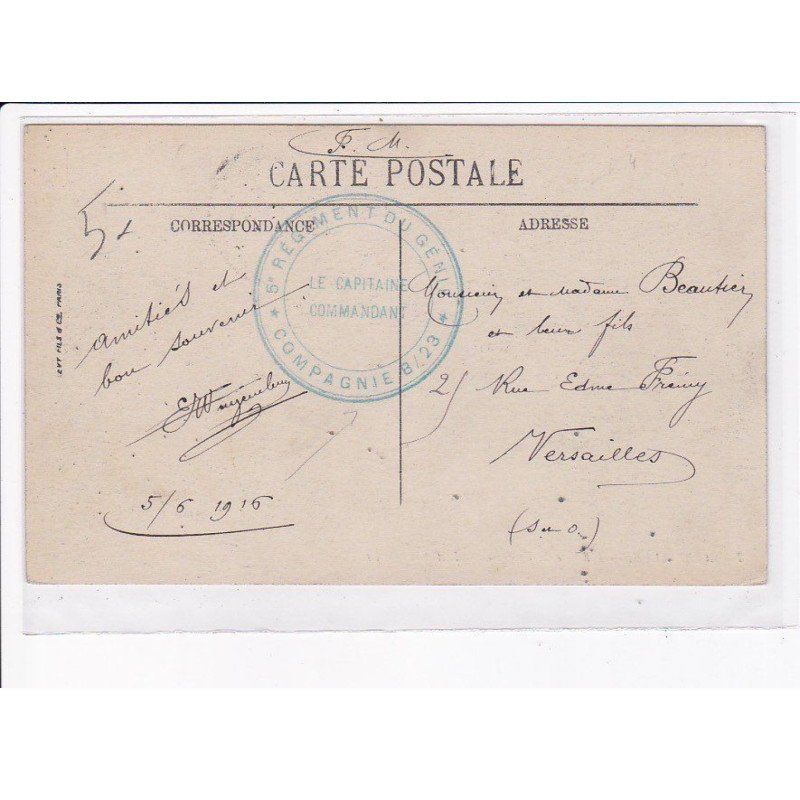 F. M.
CARTE POSTALE
CORRESPONDANCE
ADRESSE
5
5e RÉGIMENT DU GÉNIE
LE CAPITAINE
COMMANDANT
★ COMPAGNIE B/23 ★
LEVY FILS & Cie. PARIS
amitiés et
bon souvenir
5/6 1916
Monsieur et Madame Beautier
et leurs fils
25 Rue Edme Frémy
Versailles
(S et O.)